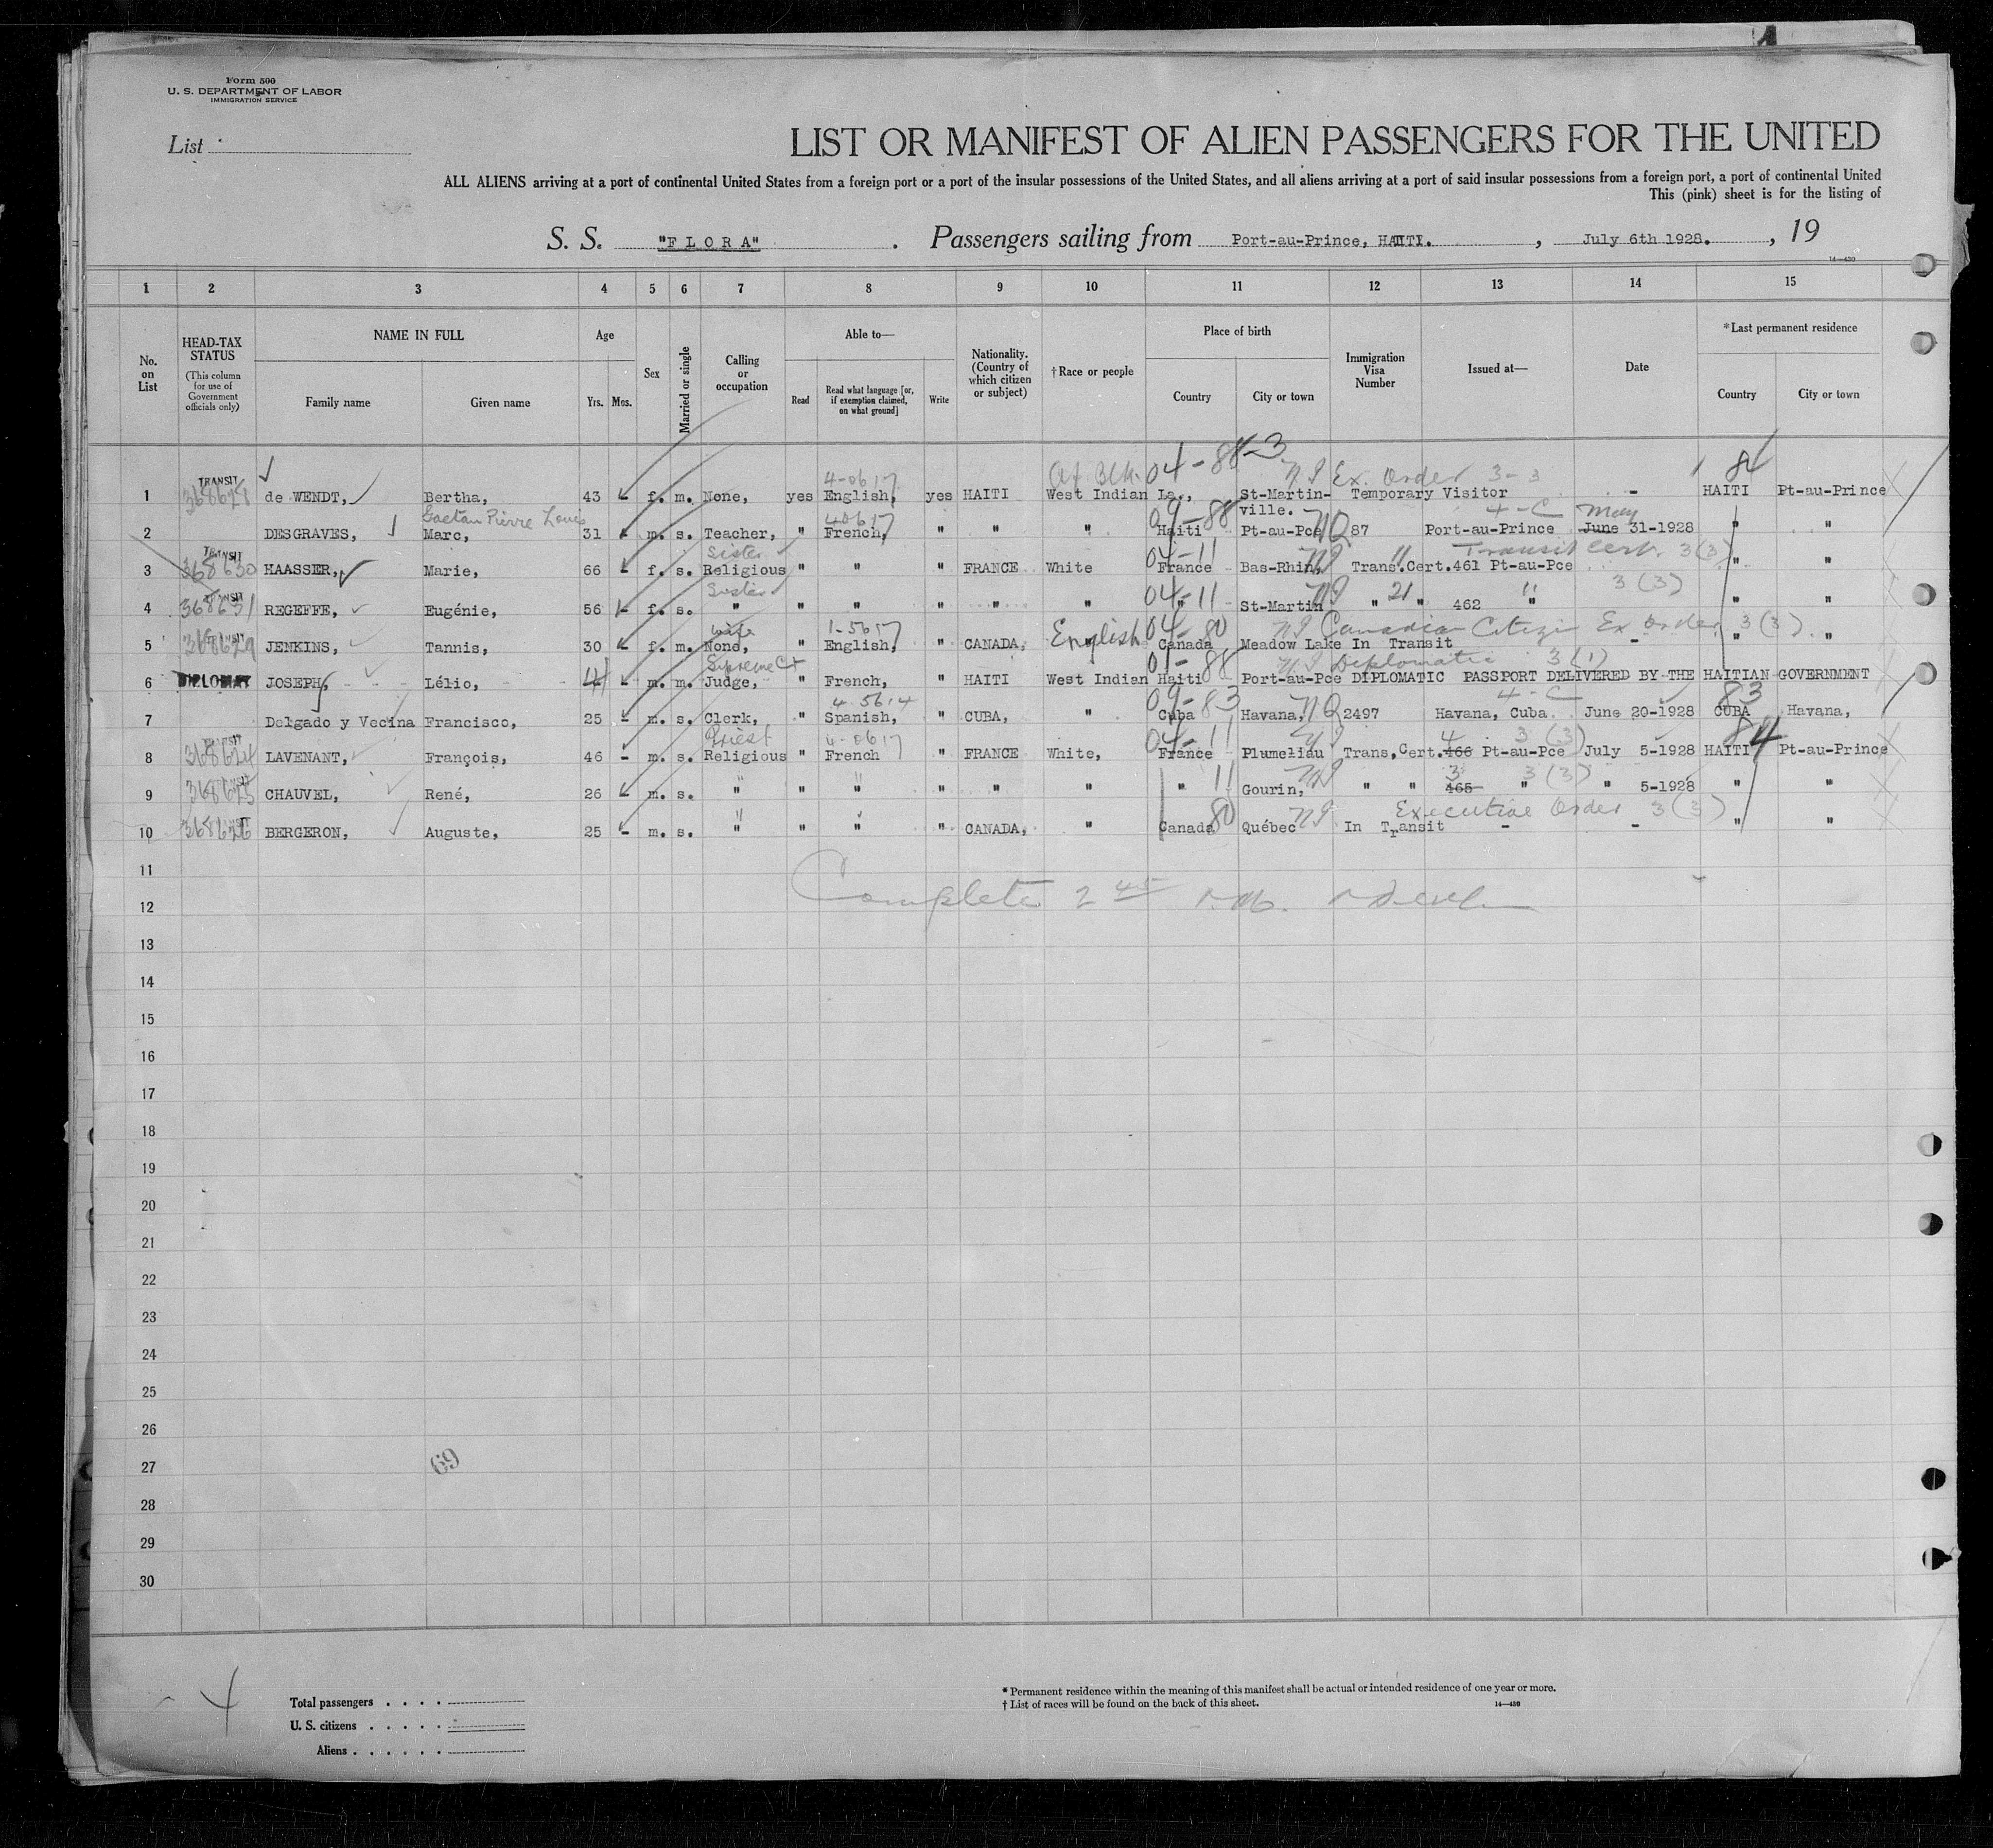 Form 500
U. S. DEPARTMENT OF LABOR
IMMIGRATION SERVICE
List
LIST OR MANIFEST OF ALIEN PASSENGERS FOR THE UNITED
ALL ALIENS arriving at a port of continental United States from a foreign port or a port of the insular possessions of the United States, and all aliens arriving at a port of said insular possessions from a foreign port, a port of continental United
This (pink) sheet is for the listing of
S. S. "FLORA" . Passengers sailing from Port-au-Prince, HAITI. , July 6th 1928. , 19
14—430
1 2 3 4 5 6 7 8 9 10 11 12 13 14 15
No. on List
HEAD-TAX STATUS (This column for use of Government officials only)
NAME IN FULL Family name Given name
Age Yrs. Mos.
Sex
Married or single
Calling or occupation
Able to— Read Read what language [or, if exemption claimed, on what ground] Write
Nationality. (Country of which citizen or subject)
†Race or people
Place of birth Country City or town
Immigration Visa Number
Issued at—
Date
*Last permanent residence Country City or town
04-88-3 84
4-0617 Af. Blk. NI Ex. Order 3-3
1 TRANSIT 368628 de WENDT, Bertha, 43 - f. m. None, yes English, yes HAITI West Indian La., St-Martin-ville. Temporary Visitor - HAITI Pt-au-Prince
Gaetan Pierre Louis 40617 09-88 4-C May
2 DESGRAVES, Marc, 31 - m. s. Teacher, " French, " " " Haiti Pt-au-Pce NQ 87 Port-au-Prince June 31-1928 " "
Sister 04-11 NI " Transit Cert. 3(3)
3 TRANSIT 368630 HAASSER, Marie, 66 - f. s. Religious " " " FRANCE White France Bas-Rhin, Trans.Cert.461 Pt-au-Pce " "
Sister 04-11 NI 21 " 3(3)
4 TRANSIT 368631 REGEFFE, Eugénie, 56 - f. s. " " " " " " " St-Martin " " 462 " " "
wife 1-5617 English 04-80 NI Canadian Citizen Ex Order 3(3)
5 368629 JENKINS, Tannis, 30 - f. m. None, " English, " CANADA, Canada Meadow Lake In Transit - " "
Supreme Ct 01-88 NI Diplomatic 3(1)
6 DIPLOMAT JOSEPH, Lélio, 41 - m. m. Judge, " French, " HAITI West Indian Haiti Port-au-Pce DIPLOMATIC PASSPORT DELIVERED BY THE HAITIAN GOVERNMENT
4 5614 09-83 4-C 83
7 Delgado y Vecina Francisco, 25 - m. s. Clerk, " Spanish, " CUBA, " Cuba Havana, NQ 2497 Havana, Cuba June 20-1928 CUBA Havana,
Priest 4-0617 04-11 NI 4 3(3) 84
8 368624 LAVENANT, François, 46 - m. s. Religious " French " FRANCE White, France Plumeliau Trans, Cert.466 Pt-au-Pce July 5-1928 HAITI Pt-au-Prince
" " 11 NI 3 3(3)
9 368625 CHAUVEL, René, 26 - m. s. " " " " " " " Gourin, " " 465 " " 5-1928 " "
" " 80 NI Executive Order 3(3)
10 368626 BERGERON, Auguste, 25 - m. s. " " " " CANADA, " Canada Québec In Transit - - " "
11
Complete 2
12
13
14
15
16
17
18
19
20
21
22
23
24
25
26
27
69
28
29
30
4
Total passengers . . . .
U. S. citizens . . . . .
Aliens . . . . . .
* Permanent residence within the meaning of this manifest shall be actual or intended residence of one year or more.
† List of races will be found on the back of this sheet. 14—430